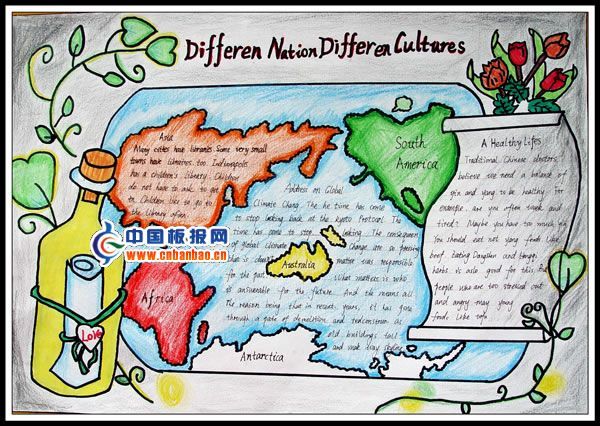 Differen Nation Differen Cultures
Asia
Many cities have libraries. Some very small
towns have libraries too. Indianapolis
has a children's library. Children
do not have to ask to get
to Children like to go to
the library often.
South
America
Address on Global
Climate Chang. The he time has come
to stop looking back at the kyoto Protocol. The
time has come to stop looking. The consequences
of global climate Change are so pressing
that is doesn't matter was responsible
for the past What matters is who
is answerable for the future. And the means all
The reason being that in recent years, it has gone
through a gate of demolition and reconstruction as
old buildings tall
and make way
Australia
Africa
Antarctica
A Healthy Lifes
Traditional Chinese doctors
believe we need a balance of
yin and yang to be healthy. For
example. are you often weak and
tired? Maybe you have too much yin
You should eat hot yang foods like
beef. Eating Dangshen and Huangqi
herbs is also good for this
people who are too stressed out
and angry may yang
foods like tofu
Love
中国板报网
www.cnbanbao.cn